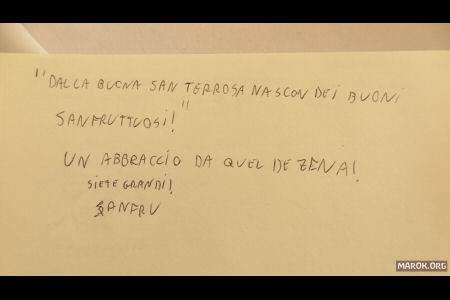 "DALLA BUONA SAN TERROSA NASCON DEI BUONI
SANFRUTTUOSI!"
UN ABBRACCIO DA QUEL DE ZENA!
SIETE GRANDI!
SANFRU
MAROK.ORG